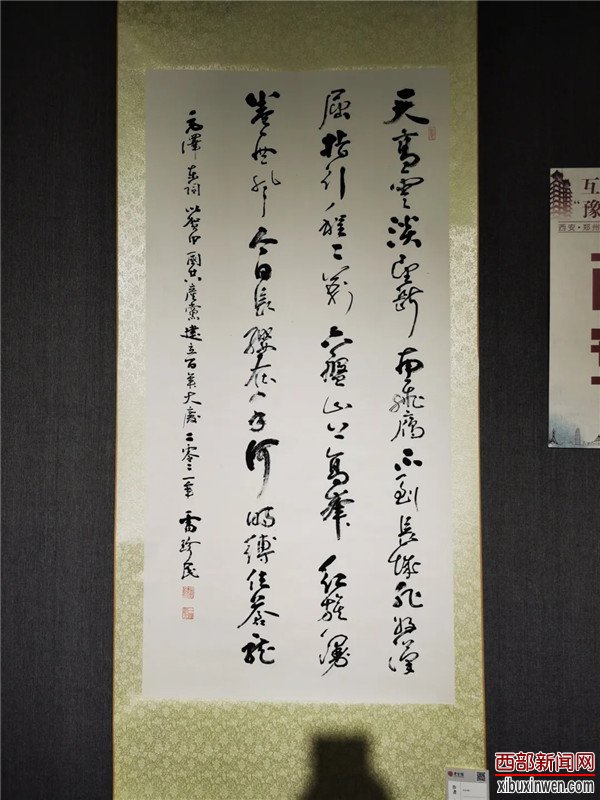 天高雲淡望斷南飛雁不到長城非好漢
屈指行程二萬六盤山上高峯紅旗漫
卷西風今日長纓在手何時縛住蒼龍
毛澤東詞以賀中國共產黨建立百年大慶二零二一年雷珍民
互
“豫
西安·郑州
作者
西部新闻网
xibuxinwen.com